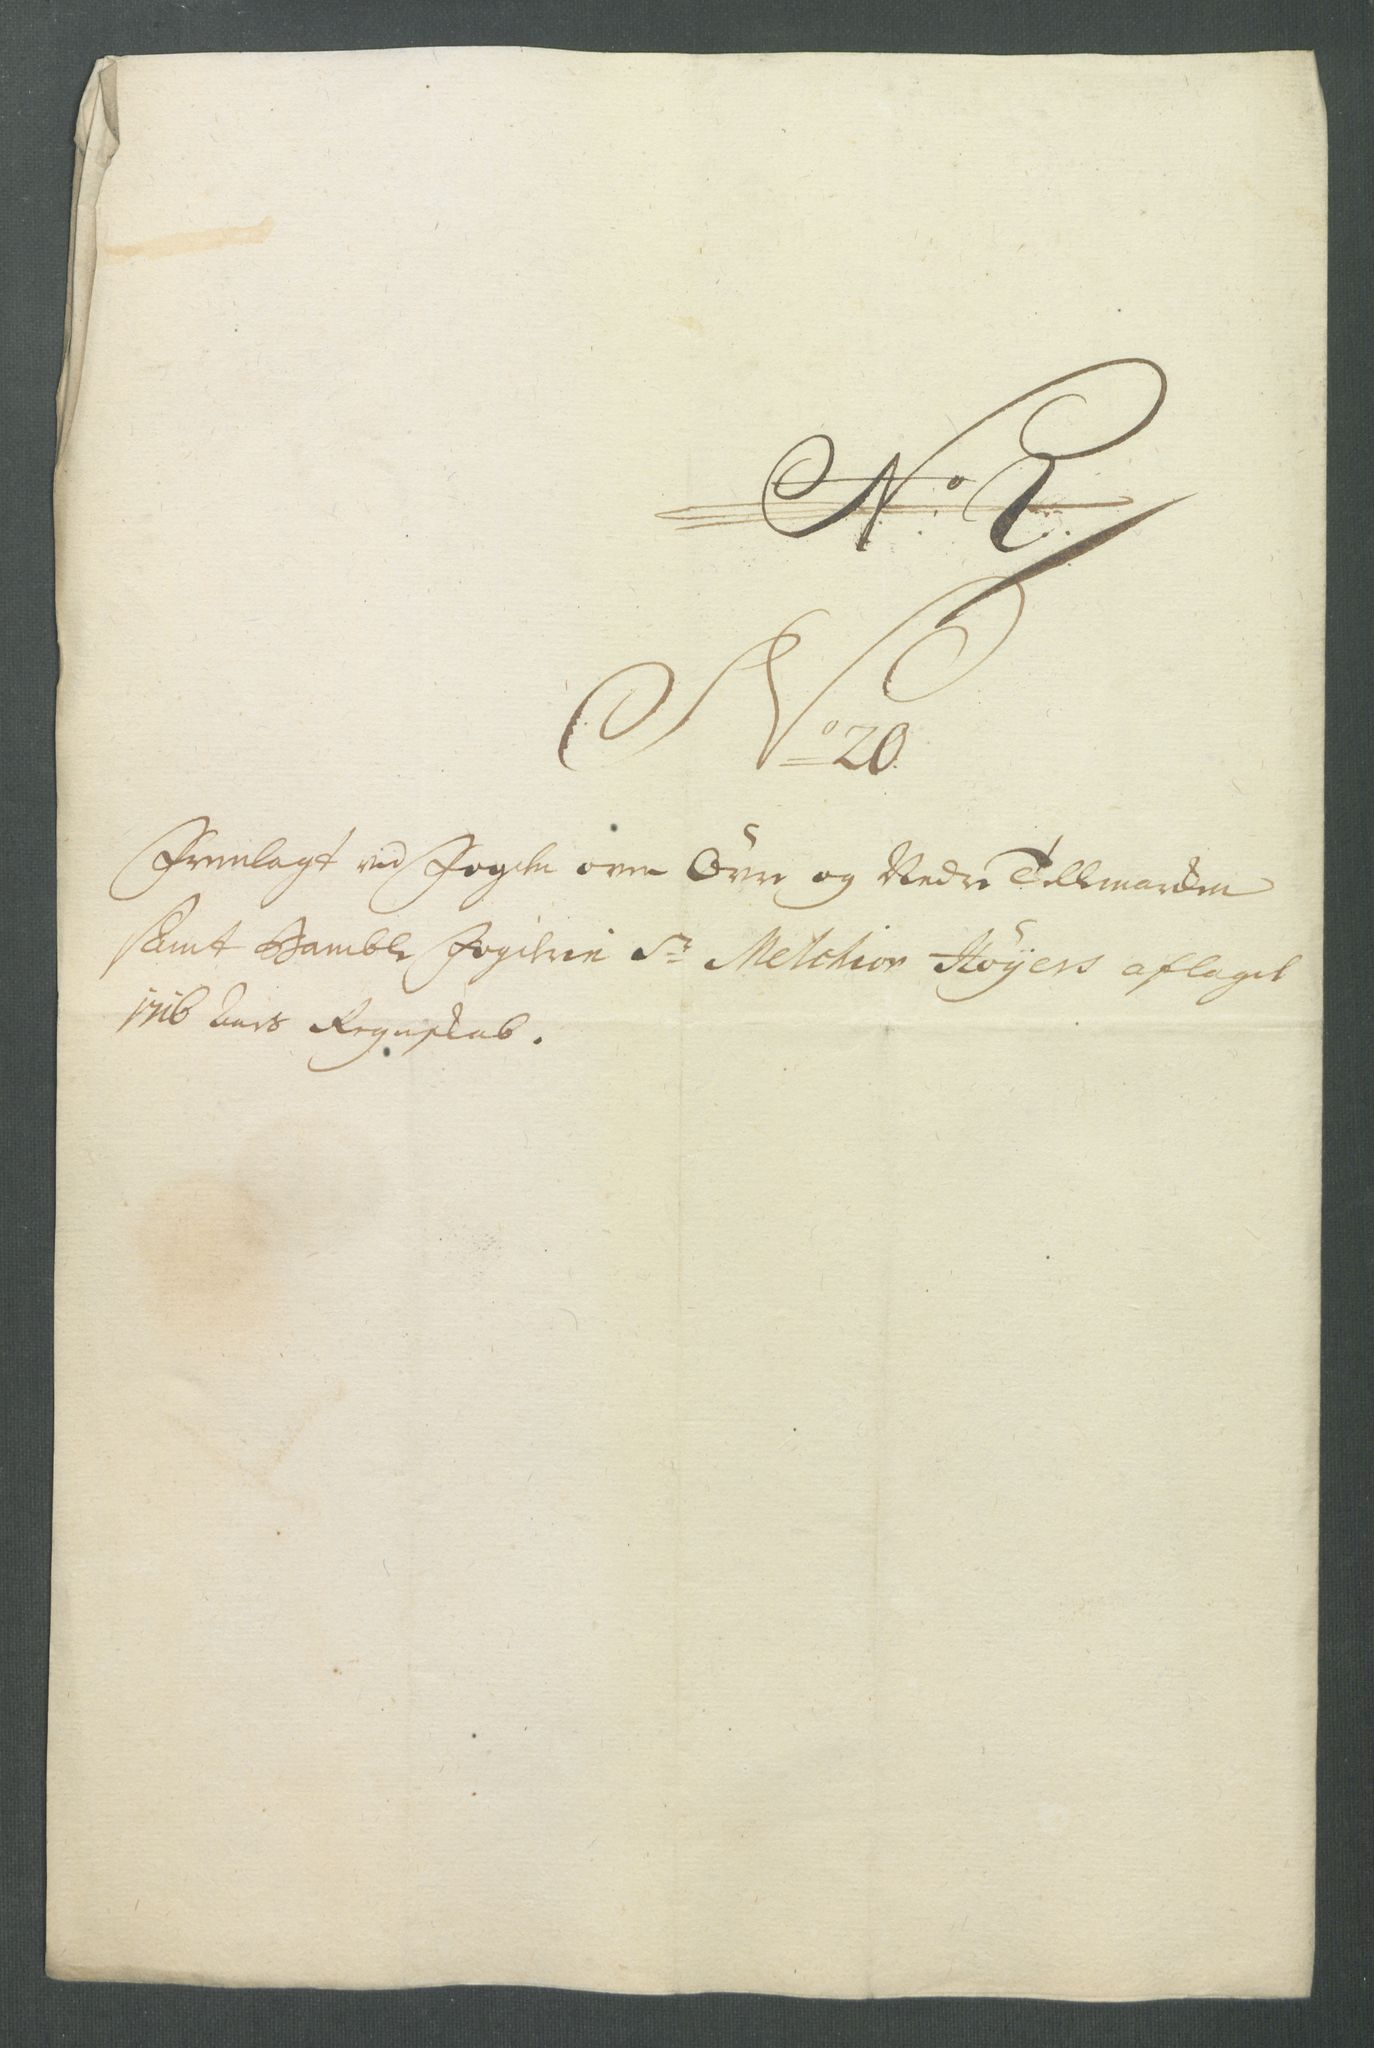 No. Z.
No 20
Fremlagt ved Fogden over Övre og Nedre Tellemarken
samt Bamble Fogderie Sr. Melchior Höÿers aflagde
1716 Aars Regnskab.